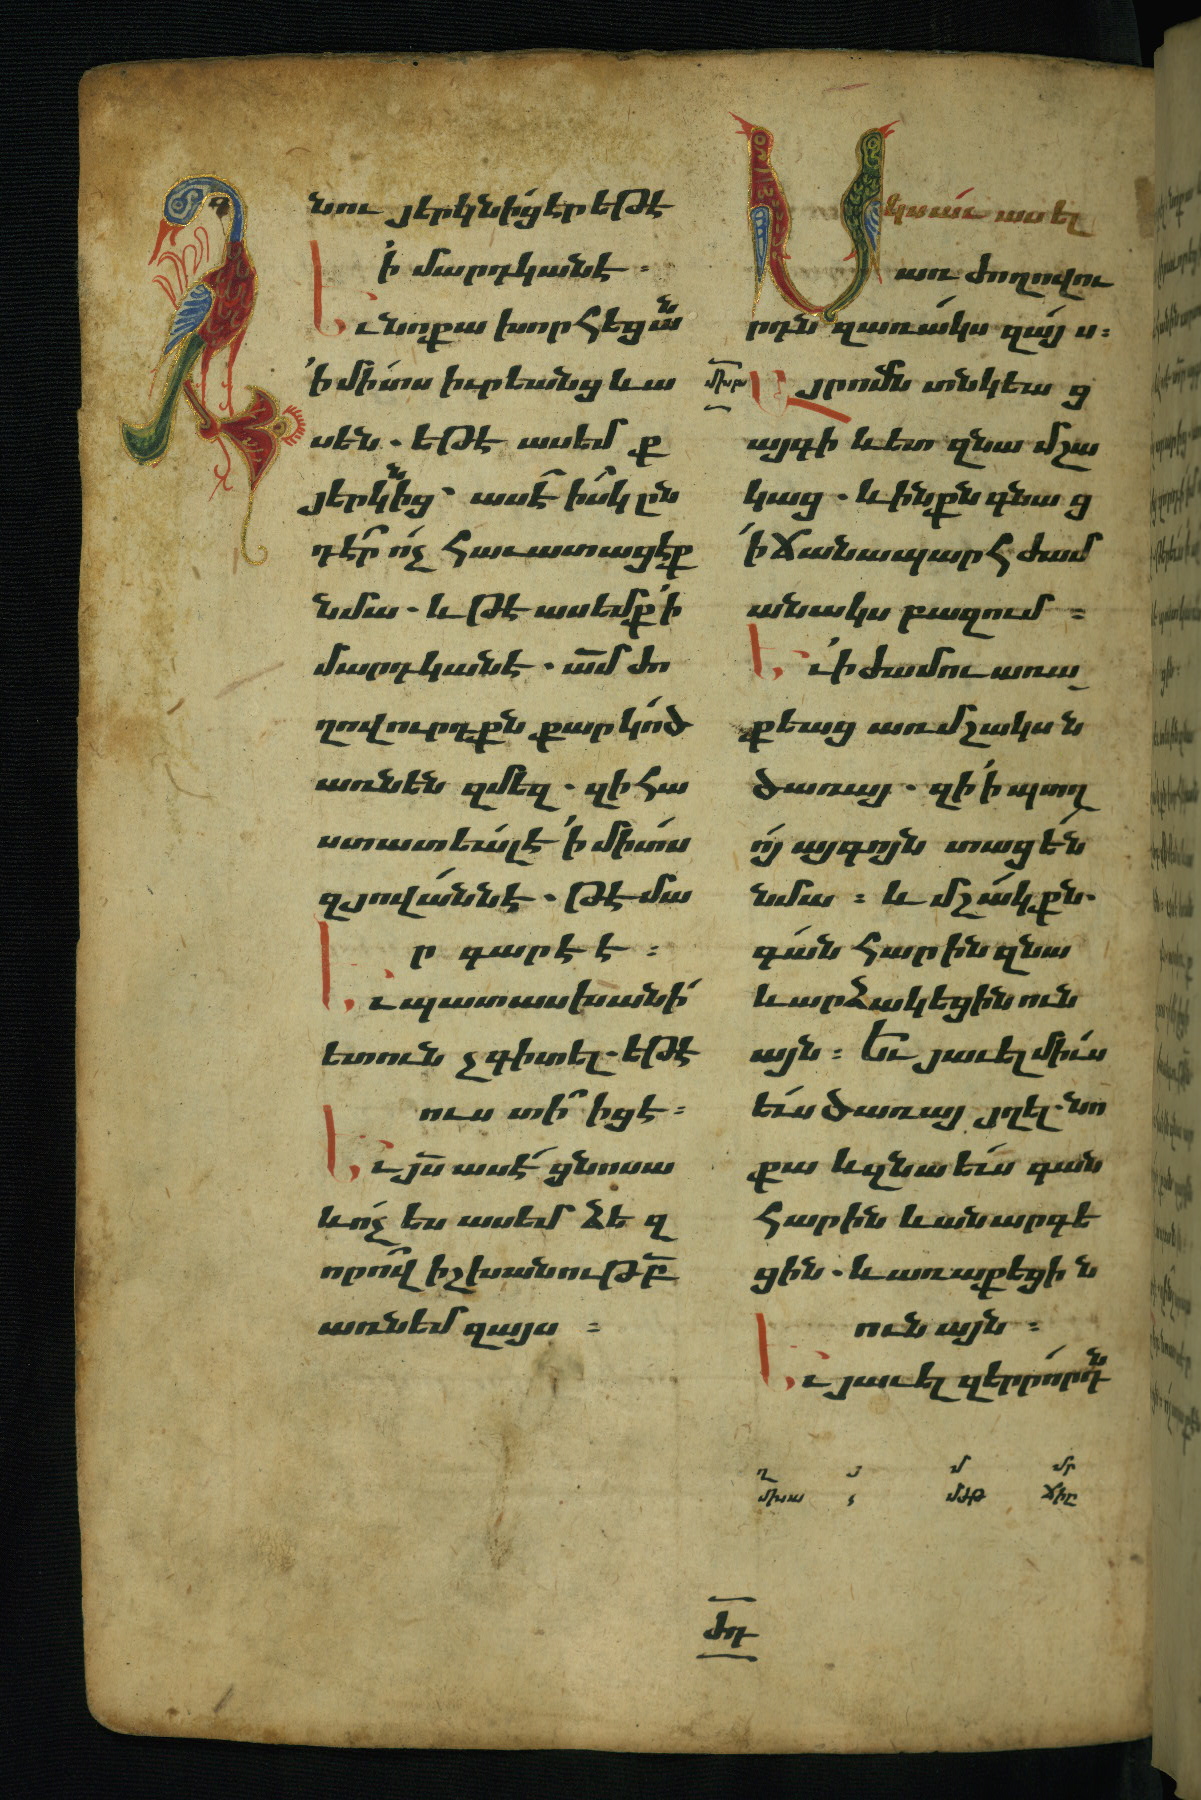 նու յերկնից էր եթէ
ի մարդկանէ։
Եւ նոքա խորհեցան
ի միտս իւրեանց և ա
սեն. եթէ ասեմ ք
յերկնից. ասէ իսկ ըն
դէր ոչ հաւատացէք
նմա. և թէ ասեմք ի
մարդկանէ. ամ ժո
ղովուրդքն քարկոծ
առնեն զմեզ. զի հա
ստատեալ է ի միտս
զյովաննէ. թէ մա
ր գարէ է։
Եւ պատասխանի
ետուն չգիտել. եթէ
ուստի իցէ։
Եւ յս ասէ ցնոսա
և ոչ ես ասեմ ձեզ
որով իշխանութբ
առնեմ զայս։
Սկսաւ ասել
առ ժողովու
րդն զառակս զայս։
մխա
Այր ոմն տնկեաց
այգի և ետ զնա մշա
կաց. և ինքն գնաց
ի ճանապարհ ժամ
անակս բազում։
Եւ ի ժամու առա
քեաց առ մշակսն
ծառայ. զի ի պտղ
ոյ այգոյն տացեն
նմա։ և մշակքն.
գան հարին զնա
և արձակեցին ուն
այն։ Եւ յաւել միւս
ևս ծառայ յղել. նո
քա և զնա ևս գան
հարին և անարգե
ցին. և առաքեցին
ունայն։
Եւ յաւել զերրորդն
ղ մ մր
մխա մժթ ճիը
ժդ